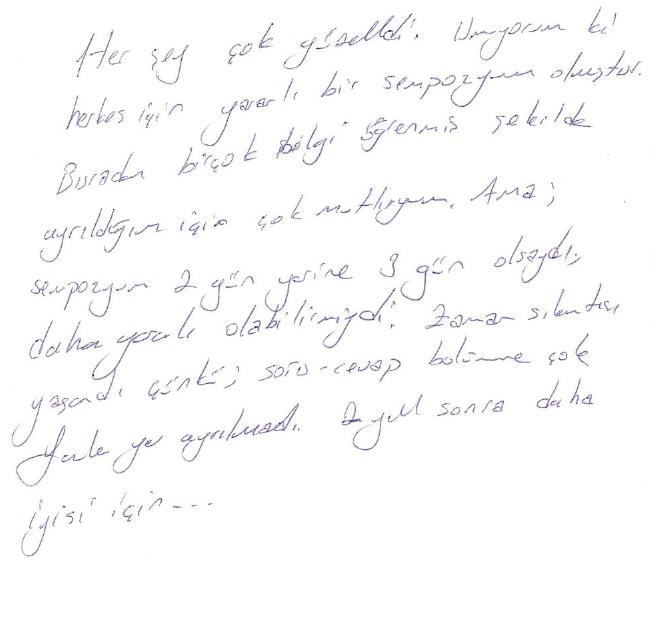 Her şey çok güzeldi. Umuyorum ki
herkes için yararlı bir sempozyum olmuştur.
Buradan birçok bilgi öğrenmiş şekilde
ayrıldığım için çok mutluyum. Ama;
sempozyum 2 gün yerine 3 gün olsaydı,
daha yararlı olabilirmiydi. Zaman sıkıntısı
yaşandı çünkü; soru-cevap bölümüne çok
fazla yer ayrılmadı. 2 yıl sonra daha
iyisi için---